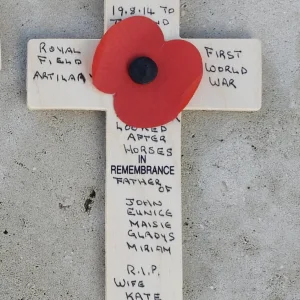 19.8.14 TO
ROYAL
FIELD
ARTILARY
FIRST
WORLD
WAR
LOOKED
AFTER
HORSES
IN
REMEMBRANCE
FATHER
OF
JOHN
EUNICE
MAISIE
GLADYS
MIRIAM
R.I.P.
WIFE
KATE